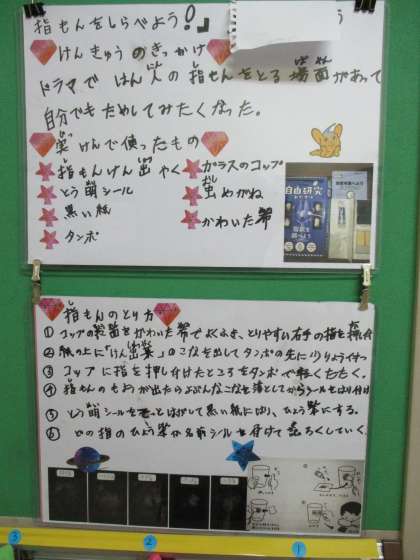 指もんをしらべよう!」
けんきゅうのきっかけ
ドラマではん人の指もんをとる場面があって
自分でもためしてみたくなった。
実けんで使ったもの
指もんけん出やく
ガラスのコップ
とう明シール
虫めがね
黒い紙
かわいた布
タンポ
自由研究
指もんのとり方
① コップの表面をかわいた布でよくふき、とりやすい右手の指を押し付け
② 紙の上に「けん出薬」のこなを出してタンポの先に少りょう付け
③ コップに指を押し付けたところをタンポで軽くたたく。
④ 指もんのもようが出たらよぶんなこなを落としてからシールをはり付け
⑤ とう明シールをそっとはがして黒い紙にはり、ひょう本にする。
⑥ どの指のひょう本か名前シールを付けて記ろくしていく。
3
2
1